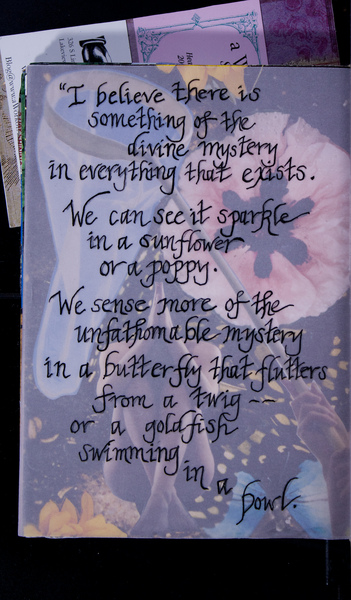 "I believe there is
something of the
divine mystery
in everything that exists.
We can see it sparkle
in a sunflower
or a poppy.
We sense more of the
unfathomable mystery
in a butterfly that flutters
from a twig --
or a goldfish
swimming
in
a
bowl.